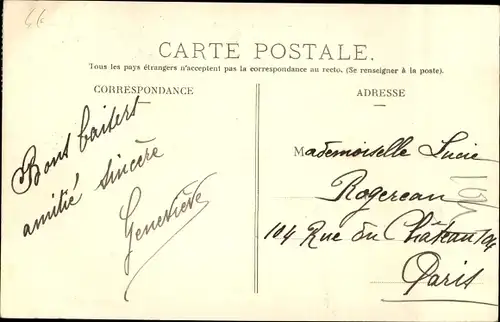 CARTE POSTALE.
Tous les pays étrangers n'acceptent pas la correspondance au recto. (Se renseigner à la poste).
CORRESPONDANCE
Bons baisers
amitié sincère
Geneviève
ADRESSE
Mademoiselle Lucie
Rogereau
104 Rue du Château 104
Paris